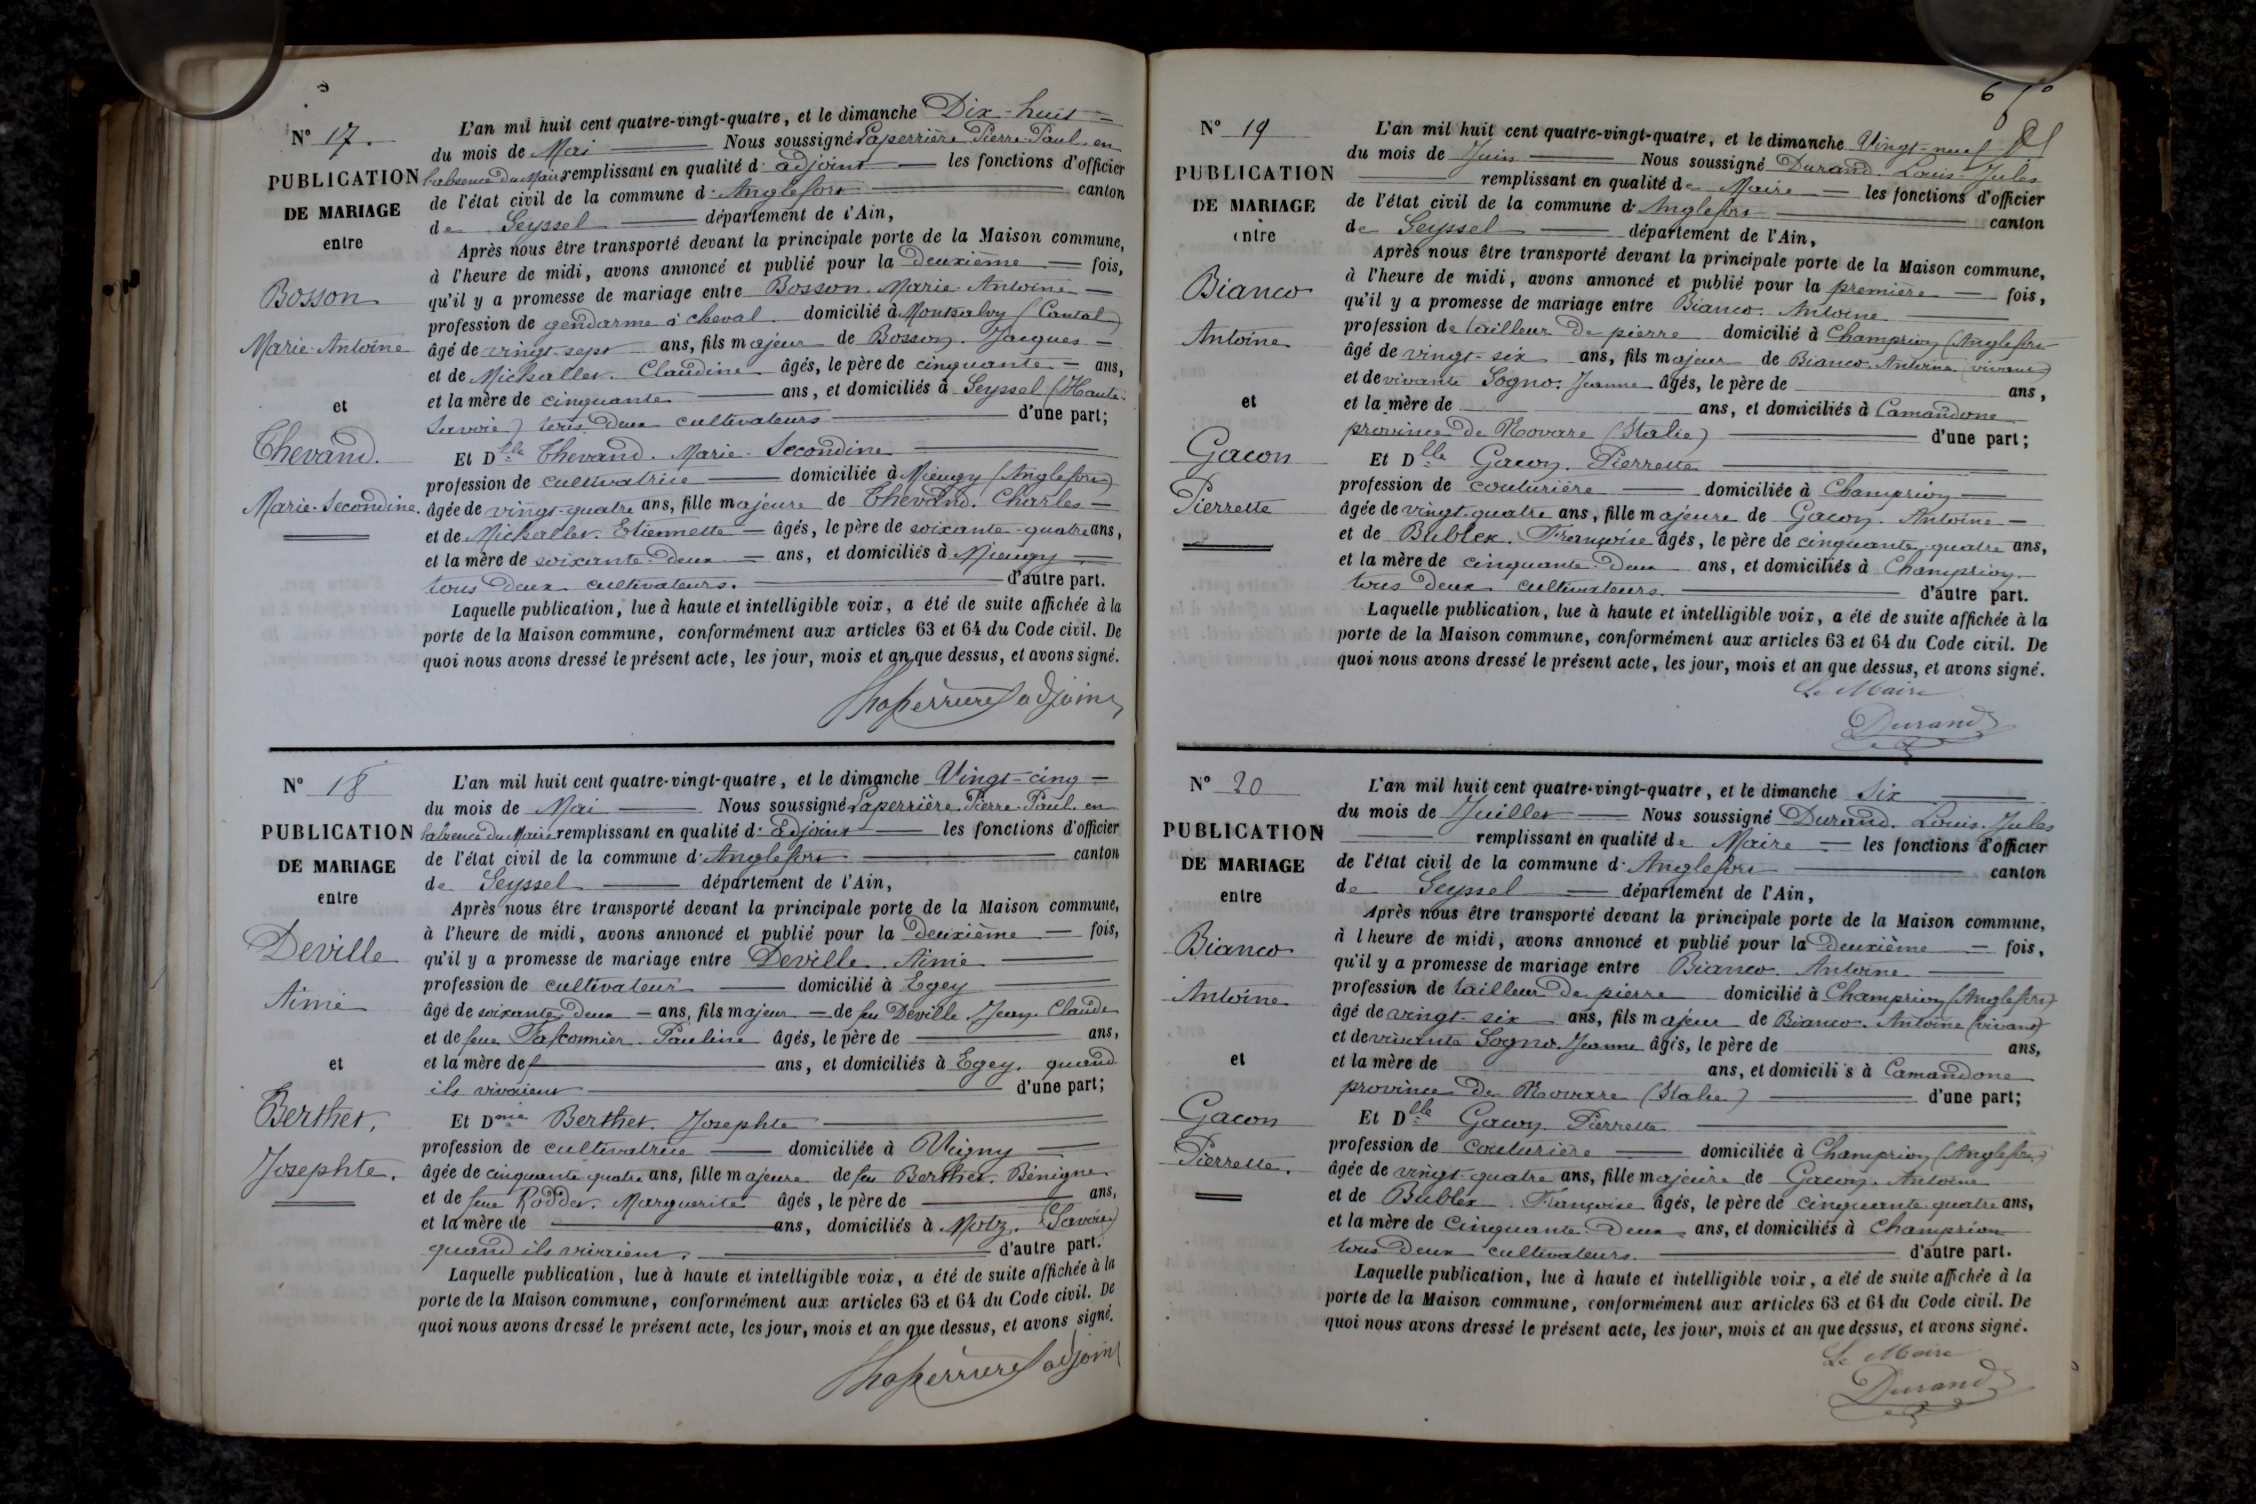 N° 17.
PUBLICATION
DE MARIAGE
entre
Bosson
Marie-Antoine
et
Thevand.
Marie-Secondine.
L'an mil huit cent quatre-vingt-quatre, et le dimanche Dix-huit
du mois de Mai Nous soussigné Laperrière Pierre-Paul en
l'absence du Maire remplissant en qualité d'adjoint les fonctions d'officier
de l'état civil de la commune d'Anglefort canton
de Seyssel département de l'Ain,
Après nous être transporté devant la principale porte de la Maison commune,
à l'heure de midi, avons annoncé et publié pour la deuxième fois,
qu'il y a promesse de mariage entre Bosson. Marie-Antoine
profession de gendarme à cheval domicilié à Montsalvy (Cantal)
âgé de vingt-sept ans, fils majeur de Bosson. Jacques
et de Michallet. Claudine âgés, le père de cinquante ans,
et la mère de cinquante ans, et domiciliés à Seyssel (Haute-
Savoie) tous deux cultivateurs d'une part;
Et Dlle Thevand. Marie-Secondine
profession de cultivatrice domiciliée à Mieugy (Anglefort)
âgée de vingt-quatre ans, fille majeure de Thevand. Charles
et de Michallet. Etiennette âgés, le père de soixante-quatre ans,
et la mère de soixante-deux ans, et domiciliés à Mieugy
tous deux cultivateurs. d'autre part.
Laquelle publication, lue à haute et intelligible voix, a été de suite affichée à la
porte de la Maison commune, conformément aux articles 63 et 64 du Code civil. De
quoi nous avons dressé le présent acte, les jour, mois et an que dessus, et avons signé.
Laperrière adjoint
N° 18
PUBLICATION
DE MARIAGE
entre
Deville
Aimé
et
Berthet,
Josephte.
L'an mil huit cent quatre-vingt-quatre, et le dimanche Vingt-cinq
du mois de Mai Nous soussigné Laperrière Pierre-Paul en
l'absence du Maire remplissant en qualité d'adjoint les fonctions d'officier
de l'état civil de la commune d'Anglefort canton
de Seyssel département de l'Ain,
Après nous être transporté devant la principale porte de la Maison commune,
à l'heure de midi, avons annoncé et publié pour la deuxième fois,
qu'il y a promesse de mariage entre Deville Aimé
profession de cultivateur domicilié à Egey
âgé de soixante-deux ans, fils majeur de feu Deville. Jean-Claude
et de feue Pauline âgés, le père de ans,
et la mère de ans, et domiciliés à Egey, quand
ils vivaient d'une part;
Et Dme Berthet. Josephte
profession de cultivatrice domiciliée à Vugny
âgée de cinquante-quatre ans, fille majeure de feu Berthet. Bénigne
et de feue Marguerite âgés, le père de ans,
et la mère de ans, domiciliés à Motz. (Savoie)
quand ils vivaient. d'autre part.
Laquelle publication, lue à haute et intelligible voix, a été de suite affichée à la
porte de la Maison commune, conformément aux articles 63 et 64 du Code civil. De
quoi nous avons dressé le présent acte, les jour, mois et an que dessus, et avons signé.
Laperrière adjoint
N° 19
PUBLICATION
DE MARIAGE
entre
Bianco
Antoine
et
Gacon
Pierrette
L'an mil huit cent quatre-vingt-quatre, et le dimanche Vingt-neuf
du mois de Juin Nous soussigné Durand. Louis-Jules
remplissant en qualité de Maire les fonctions d'officier
de l'état civil de la commune d'Anglefort canton
de Seyssel département de l'Ain,
Après nous être transporté devant la principale porte de la Maison commune,
à l'heure de midi, avons annoncé et publié pour la première fois,
qu'il y a promesse de mariage entre Bianco. Antoine
profession de tailleur de pierre domicilié à Champrion (Anglefort
âgé de vingt-six ans, fils majeur de Bianco. Antoine (vivant)
et de vivante Sogno. Jeanne âgés, le père de ans,
et la mère de ans, et domiciliés à Camandone
province de Novare (Italie) d'une part;
Et Dlle Gacon. Pierrette
profession de couturière domiciliée à Champrion
âgée de vingt-quatre ans, fille majeure de Gacon. Antoine
et de Bublex. Françoise âgés, le père de cinquante-quatre ans,
et la mère de cinquante-deux ans, et domiciliés à Champrion
tous deux cultivateurs. d'autre part.
Laquelle publication, lue à haute et intelligible voix, a été de suite affichée à la
porte de la Maison commune, conformément aux articles 63 et 64 du Code civil. De
quoi nous avons dressé le présent acte, les jour, mois et an que dessus, et avons signé.
Le Maire
Durand
N° 20
PUBLICATION
DE MARIAGE
entre
Bianco
Antoine
et
Gacon
Pierrette.
L'an mil huit cent quatre-vingt-quatre, et le dimanche Six
du mois de Juillet Nous soussigné Durand. Louis-Jules
remplissant en qualité de Maire les fonctions d'officier
de l'état civil de la commune d'Anglefort canton
de Seyssel département de l'Ain,
Après nous être transporté devant la principale porte de la Maison commune,
à l'heure de midi, avons annoncé et publié pour la deuxième fois,
qu'il y a promesse de mariage entre Bianco Antoine
profession de tailleur de pierre domicilié à Champrion (Anglefort)
âgé de vingt-six ans, fils majeur de Bianco. Antoine (vivant)
et de vivante Sogno. Jeanne âgés, le père de ans,
et la mère de ans, et domiciliés à Camandone
province de Novare (Italie) d'une part;
Et Dlle Gacon. Pierrette
profession de couturière domiciliée à Champrion (Anglefort)
âgée de vingt-quatre ans, fille majeure de Gacon. Antoine
et de Bublex. Françoise âgés, le père de cinquante-quatre ans,
et la mère de cinquante-deux ans, et domiciliés à Champrion
tous deux cultivateurs. d'autre part.
Laquelle publication, lue à haute et intelligible voix, a été de suite affichée à la
porte de la Maison commune, conformément aux articles 63 et 64 du Code civil. De
quoi nous avons dressé le présent acte, les jour, mois et an que dessus, et avons signé.
Le Maire
Durand